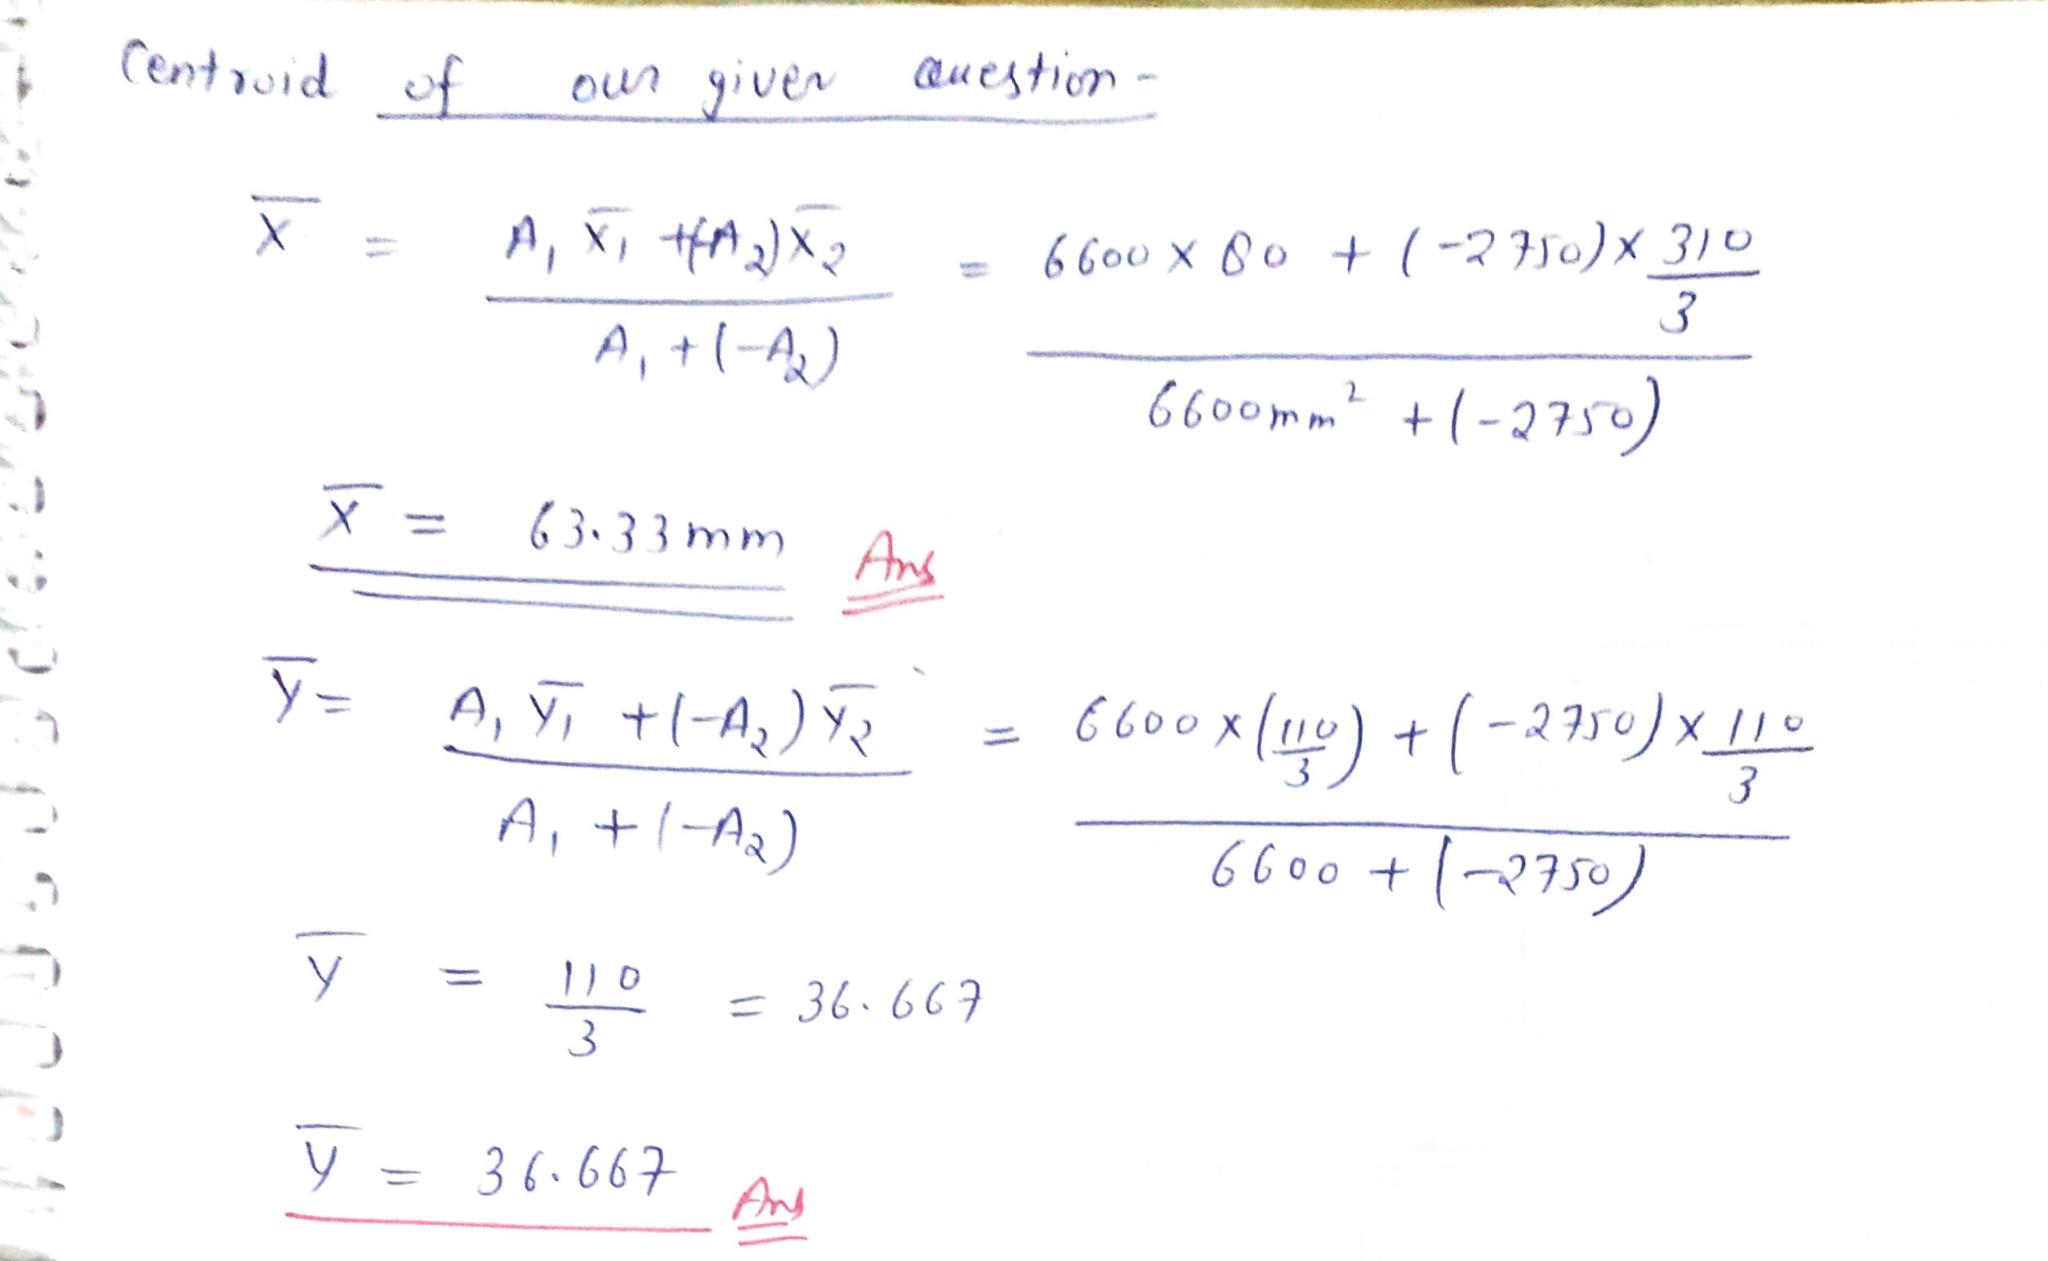 Centroid of our given Question -
X̄ = (A₁ X̄₁ + (-A₂) X̄₂) / (A₁ + (-A₂)) = (6600 × 80 + (-2750) × 310/3) / (6600mm² + (-2750))
X̄ = 63.33 mm Ans
Ȳ = (A₁ Ȳ₁ + (-A₂) Ȳ₂) / (A₁ + (-A₂)) = (6600 × (110/3) + (-2750) × 110/3) / (6600 + (-2750))
Ȳ = 110/3 = 36.667
Ȳ = 36.667 Ans